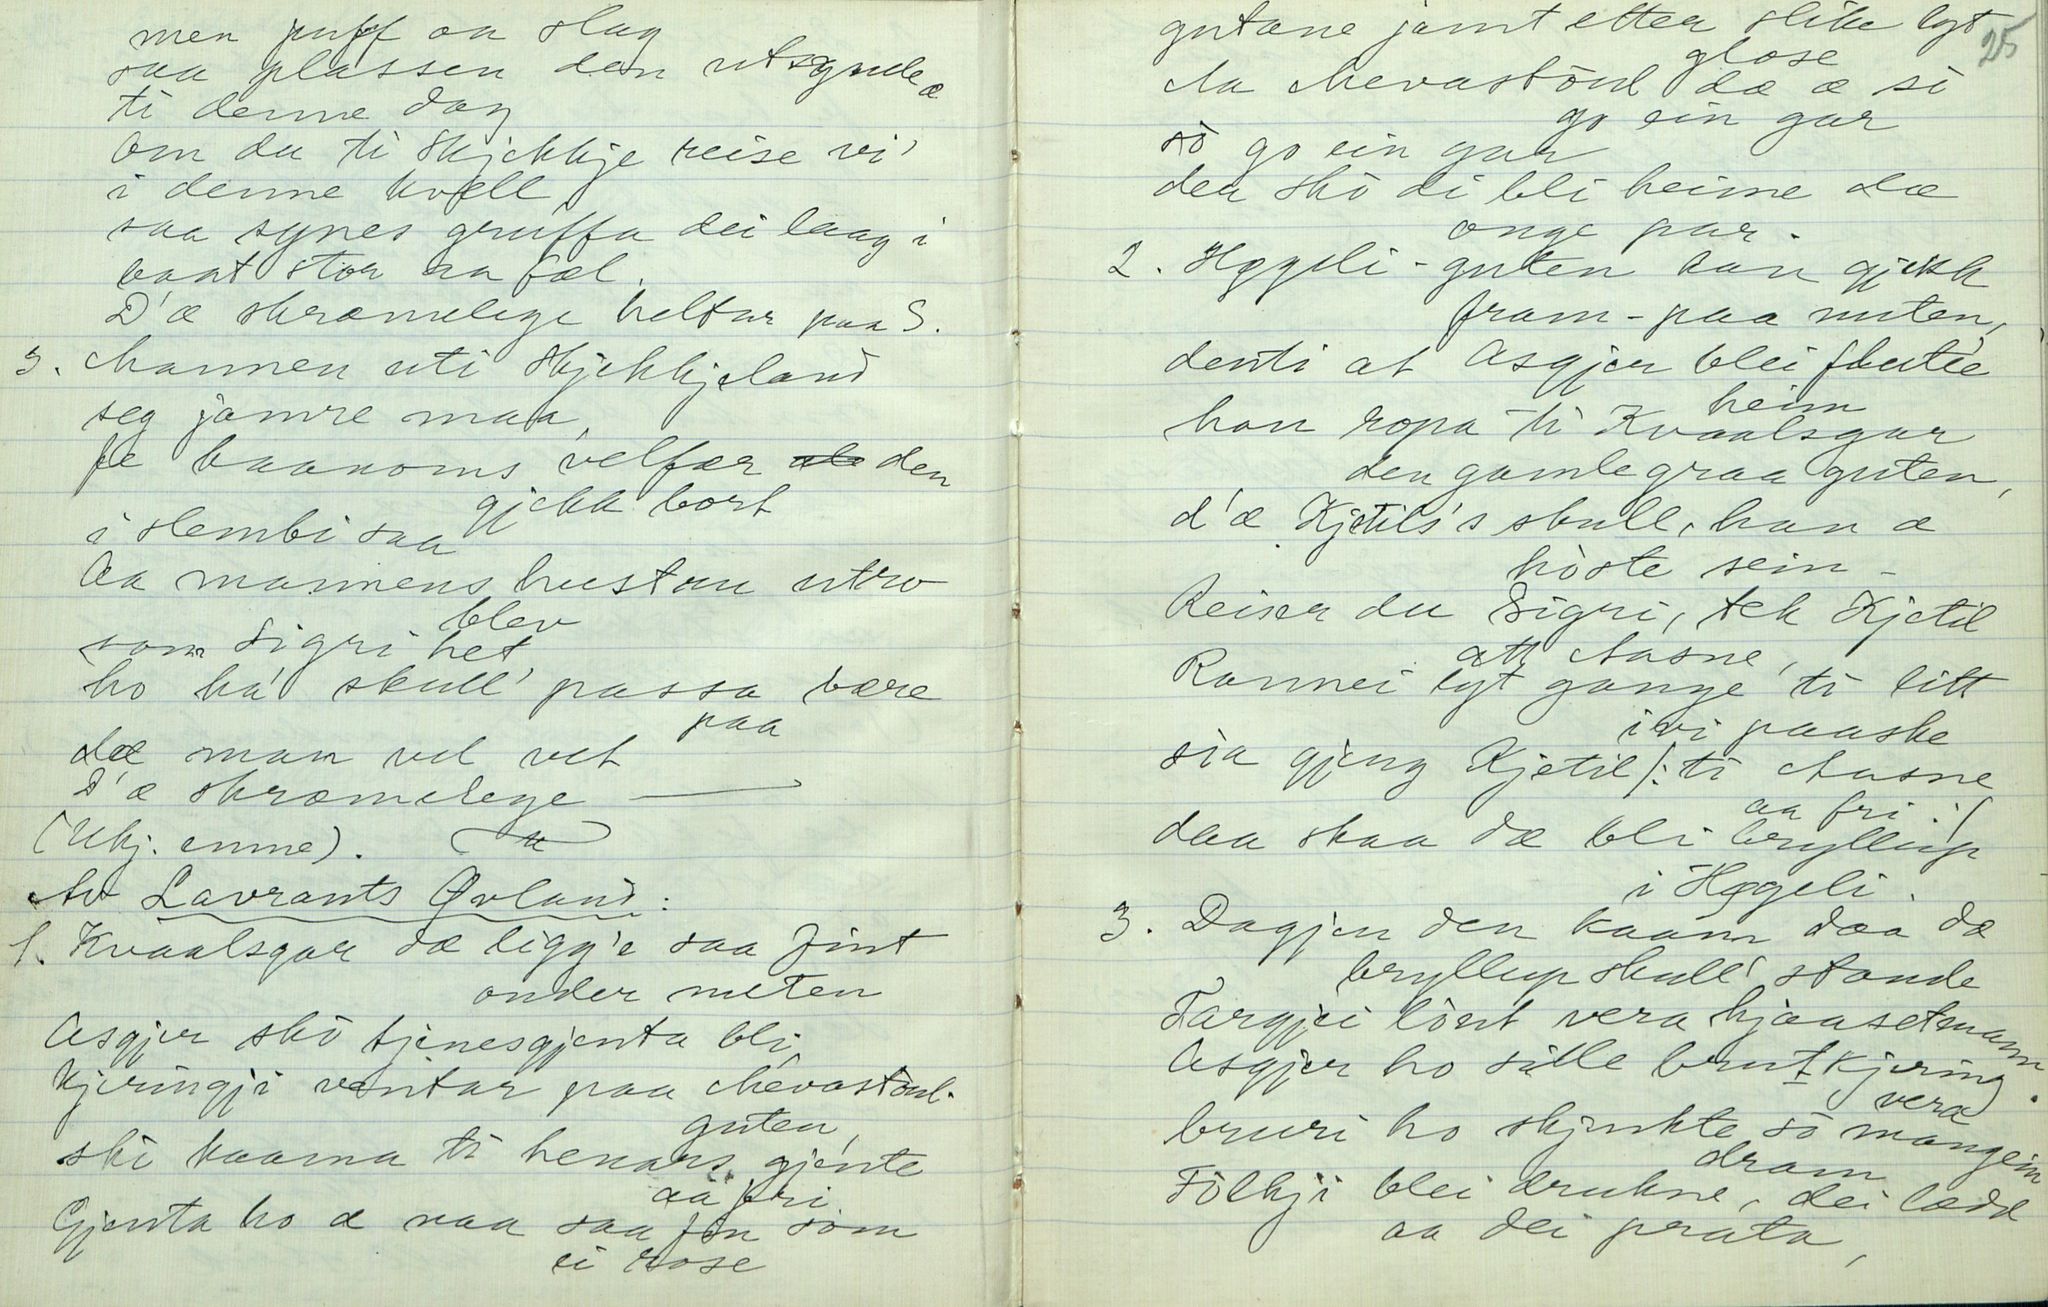 men puff aa slag
saa plassen den utsynde æ
ti denne dag
Om du ti Skjekkje reise vi'
i denne kvell
saa synes gruffa dei laag i
vaat stor aa fæl.
D'æ skræmelege heltur paa S.
3. Mannen uti Skjekkjeland
seg jamre maa,
fe baanoms velfær den
gjekk bort
i slembi saa
Aa mannens hustru utro
blev
som Sigri het
ho ha' skull' passa bære
paa
dæ man vel vet
D'æ skræmelege —
(Ukj. emne).
Av Lavrants Øvland:
1. Kvaalsgar dæ ligg'e saa fint
onder nuten
Asgjer skò tjenesgjenta bli
Kjeringji ventar paa Mevastòul-
guten,
skò kaama ti henars gjente
aa fri
Gjenta ho æ naa saa fin som
ei rose
25
gutane jamt etter slike lyt
glose
Aa Mevastòul dæ æ sò
go ein gar
sò go ein gar
der skò di bli heime dæ
onge par.
2. Høgeli-guten han gjekk
fram-paa nuten,
denti at Asgjer blei flutte
heim
han ropa ti Kvaalsgar
den gamle graa guten,
d'æ Kjetils's skull, han æ
hòste sein -
Reiser du Sigri, tek Kjetil
att Aasne,
Rannei lyt gange ti litt
ivi paaske
sia gjeng Kjetil /: ti Aasne
aa fri :/
daa skaa dæ bli bryllup
i Høgeli.
3. Dagjen den kaam daa dæ
bryllup skull' stande
Targjei lòut vera kjøasetmann
Asgjer ho sille brutkjering
vera.
bruri ho skjenkte sò mangein
dram
Fòlkji blei drukne, dei lædd
aa dei prata,